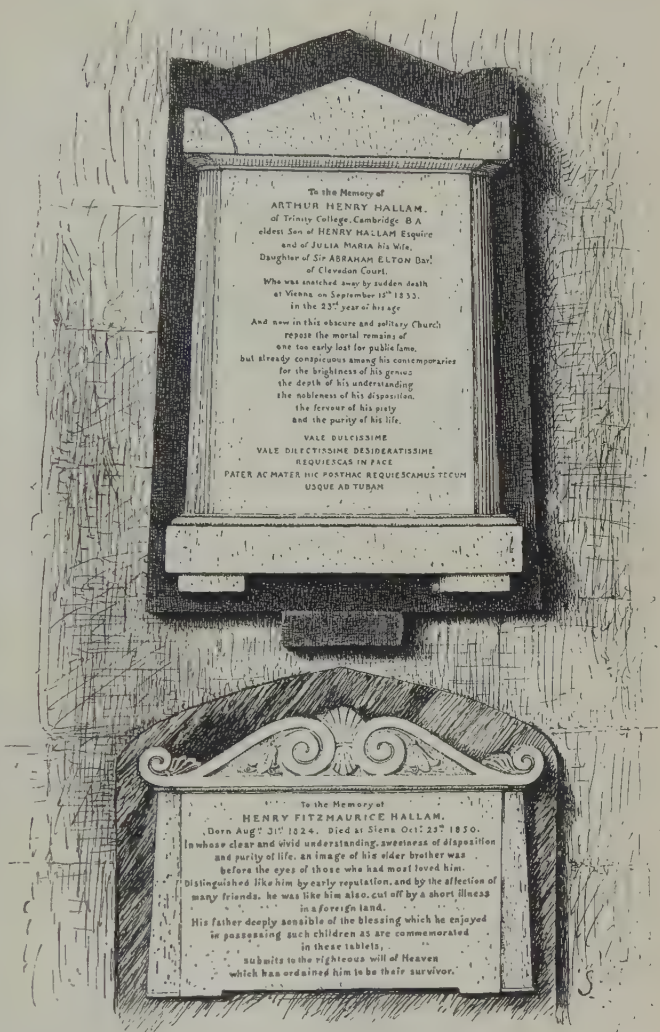 To the Memory of
ARTHUR HENRY HALLAM,
of Trinity College, Cambridge B A
eldest Son of HENRY HALLAM Esquire
and of JULIA MARIA his Wife,
Daughter of Sir ABRAHAM ELTON Bart
of Clevedon Court.
Who was snatched away by sudden death
at Vienna on September 15th 1833.
in the 23rd year of his age
And now in this obscure and solitary Church
repose the mortal remains of
one too early lost for public fame,
but already conspicuous among his contemporaries
for the brightness of his genius
the depth of his understanding
the nobleness of his disposition.
the fervour of his piety
and the purity of his life.
VALE DULCISSIME
VALE DILECTISSIME DESIDERATISSIME
REQUIESCAS IN PACE
PATER AC MATER HIC POSTHAC REQUIESCAMUS TECUM
USQUE AD TUBAM
To the Memory of
HENRY FITZMAURICE HALLAM,
Born Augst 31st 1824. Died at Siena Octr 25th 1850.
In whose clear and vivid understanding, sweetness of disposition
and purity of life, an image of his elder brother was
before the eyes of those who had most loved him.
Distinguished like him by early reputation, and by the affection of
many friends, he was like him also, cut off by a short illness
in a foreign land.
His father deeply sensible of the blessing which he enjoyed
in possessing such children as are commemorated
in these tablets,
submits to the righteous will of Heaven
which has ordained him to be their survivor.
S.